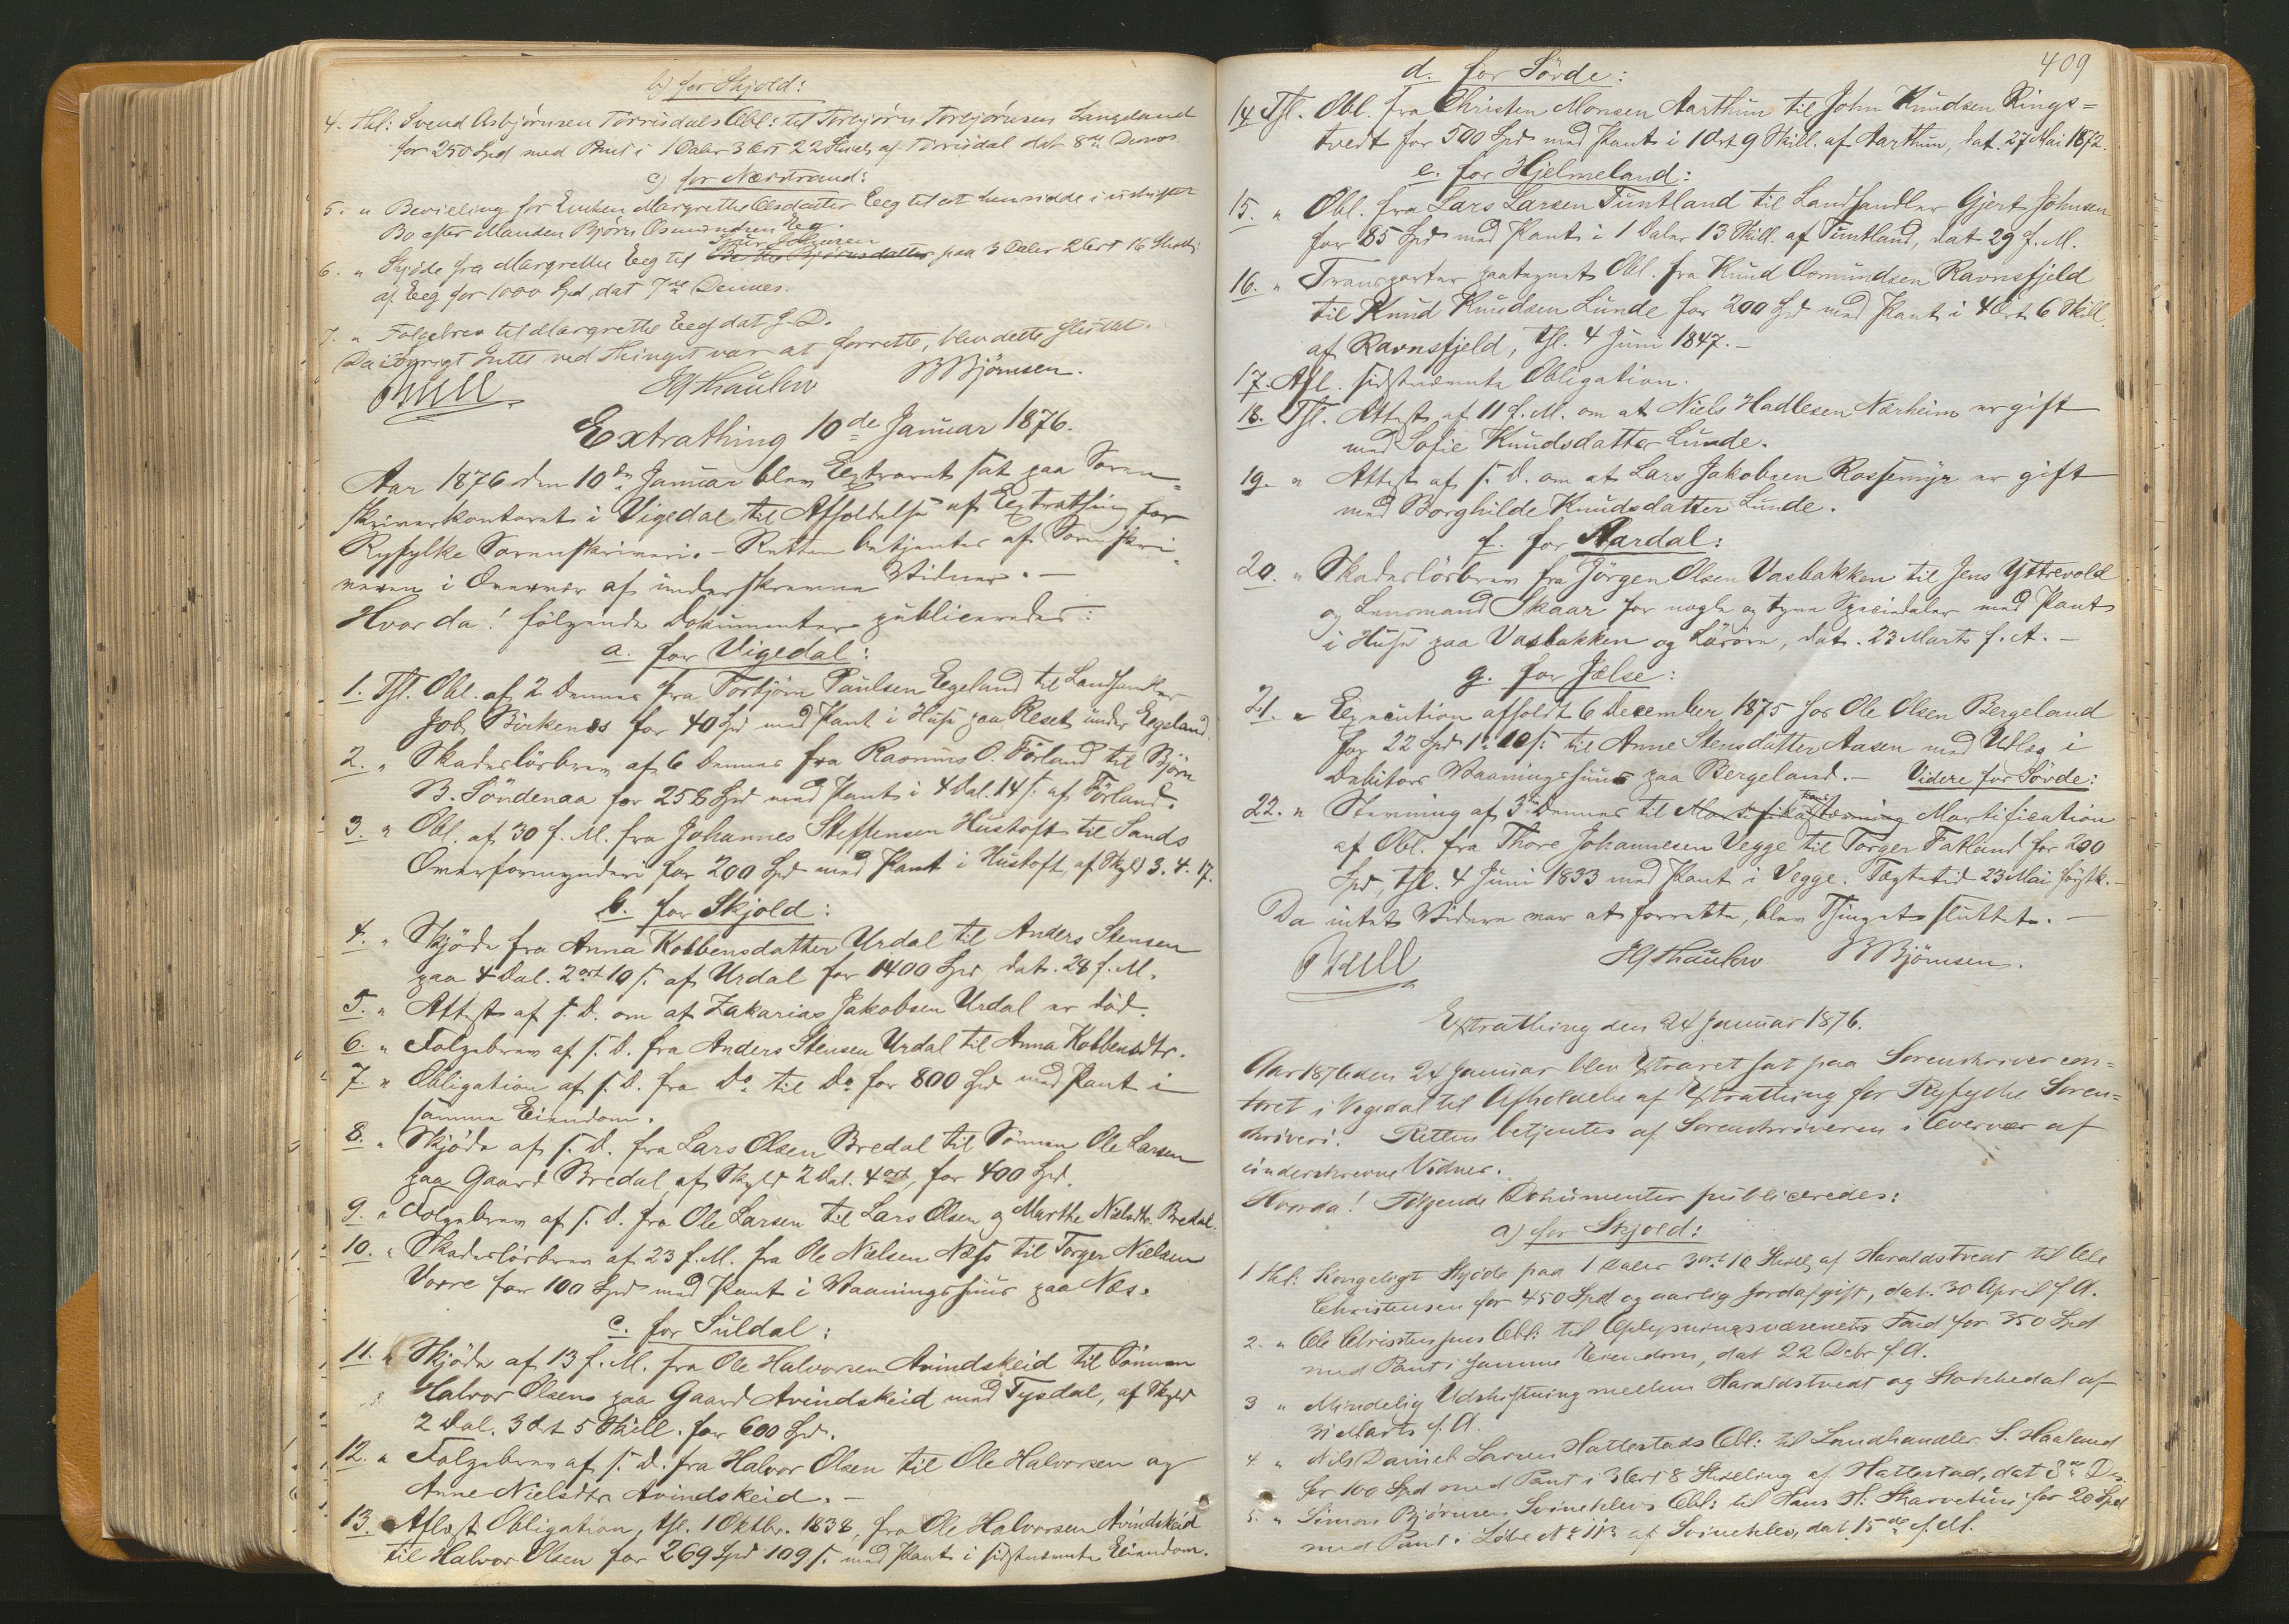 b) for Skjold:
4. Thl: Svend Asbjørnsen Tørrisdals Obl: til Torbjørn Torbjørnsen Langeland
for 250 Spd med Pant i 1 Daler 3 Ort 22 Skill af Tørrisdal dat 8de Dennes
c) for Nærstrand:
5. " Bevilling for Enken Margrethe Olsdatter Eeg til at hensidde i uskiftet
Bo efter Manden Bjørn Osmundsen Eeg.
6. " Skjøde fra Margrethe Eeg til paa 3 Daler 2 Ort 16 Skill
af Eeg for 1000 Spd, dat 7de Dennes.
7. " Folgebrev til Margrethe Eeg dat s. D.
Da iøvrigt Intet ved Thinget var at forrette, blev dette sluttet.
Bull HThaulow BBjörnsen.
Extrathing 10de Januar 1876.
Aar 1876 den 10de Januar blev Extraret sat paa Soren-
skriverkontoret i Vigedal til Afholdelse af Extrathing for
Ryfylke Sorenskriveri. - Retten betjentes af Sorenskri-
veren i Overvær af underskrevne Vidner. -
Hvorda! følgende Dokumenter publiceredes:
a. for Vigedal:
1. Thl. Obl. af 2 Dennes fra Torbjörn Paulsen Eegeland til Landhandler
Job Birkenes for 40 Spd med Pant i Huse paa Reset under Eegeland.
2. " Skadeslösbrev af 6 Dennes fra Rasmus O. Förland til Björn
B. Söndenaa for 258 Spd med Pant i 4 Dal. 14 s. af Förland.
3. " Obl. af 30 f. M. fra Johannes Steffensen Hustoft til Sands
Overformynderi for 200 Spd med Pant i Hustoft, af Skyld 3. 4. 17.
b. for Skjold:
4. " Skjöde fra Anna Kobbensdatter Urdal til Anders Stensen
paa 4 Dal. 2 ort 10 s. af Urdal for 1400 Spd dat. 28 f. M.
5. " Attest af s. D. om at Zakarias Jakobsen Urdal er död.
6. " Folgebrev af s. D. fra Anders Stensen Urdal til Anna Kobbensdtr.
7. " Obligation af s. D. fra Do til Do for 800 Spd med Pant i
samme Eiendom.
8. " Skjöde af s. D. fra Lars Olsen Bredal til Sönnen Ole Larsen
paa Gaard Bredal af Skyld 2 Dal. 4 ort, for 400 Spd.
9. " Folgebrev af s. D. fra Ole Larsen til Lars Olsen og Marthe Nielsdtr. Bredal.
10. " Skadeslösbrev af 23 f. M. fra Ole Nielsen Næss til Torger Nielsen
Vorre for 100 Spd med Pant i Vaaningshuus paa Næs.
c. for Suldal:
11. " Skjöde af 13 f. M. fra Ole Halvorsen Avindskeid til Sönnen
Halvor Olsens paa Gaard Avindskeid med Tysdal, af Skyld
2 Dal. 3 Ort 5 Skill. for 600 Spd.
12. " Folgebrev af s. D. fra Halvor Olsen til Ole Halvorsen og
Anne Nielsdtr Avindskeid. -
13. Aflæst Obligation, thl. 1 Oktbr. 1838, fra Ole Halvorsen Avindskeid
til Halvor Olsen for 269 Spd 109 s. med Pant i sidstnævnte Eiendom.
409
d. for Sövde:
14 Thl. Obl. fra Christen Monsen Aarthun til John Knudsen Rings=
tvedt for 500 Spd med Pant i 1 Ort 9 Skill. af Aarthun, dat. 27 Mai 1872.
e. for Hjelmeland:
15. " Obl. fra Lars Larsen Tuntland til Landhandler Gjert Johnsen
for 85 Spd med Pant i 1 Daler 13 Skill. af Tuntland, dat 29 f. M.
16. " Transporter paategnet Obl. fra Knud Osmundsen Ravnsfjeld
til Knud Knudsen Lunde for 200 Spd med Pant i 4 Ort 6 Skill.
af Ravnsfjeld, thl. 4 Juni 1847. -
17. Afl. sidstnævnte Obligation.
18. Thl. Attest af 11 f. M. om at Niels Hadlesen Nærheim er gift
med Sofie Knudsdatter Lunde.
19. " Attest af s. D. om at Lars Jakobsen Rossemyr er gift
med Borghilde Knudsdatter Lunde.
f. for Aardal:
20. " Skadeslösbrev fra Jörgen Olsen Vasbakken til Jens Yttrevold
og Lensmand Skaar for nogle og tyve Speciedaler med Pant
i Huse paa Vasbakken og Lösöre, dat. 23 Marts f. A. -
g. for Jelse:
21. " Execution afholdt 6 December 1875 hos Ole Olsen Bergeland
for 22 Spd 1 10 s. til Anne Stensdatter Aasen med Udlæg i
Debitors Vaaningshuus paa Bergeland. - Videre for Sövde:
22. " Stevning af 3de Dennes til Mortification
af Obl. fra Thore Johannesen Vegge til Torger Fatland for 200
Spd, thl. 4 Juni 1833 med Pant i Vegge. Tægtetid 23 Mai förstk. -
Da intet Videre var at forrette, blev Thinget sluttet. -
Bull HThaulow BBjörnsen.
Extrathing den 24 Januar 1876.
Aar 1876 den 24 Januar blev Extraret sat paa Sorenskrivercon=
toret i Vigedal til Afholdelse af Extrathing for Ryfylke Soren=
skriveri. Retten betjentes af Sorenskriveren i Overvær af
underskrevne Vidner.
Hvorda! Følgende Dokumenter publiceredes:
a) for Skjold:
1 Thl: Kongeligt Skjøde paa 1 Daler 3 ort 10 Skill af Haraldstveit til Ole
Christensen for 450 Spd og aarlig Jordafgift, dat. 30 April f. A.
2. " Ole Christensens Obl: til Oplysningsvæsenets Fond for 350 Spd
med Pant i samme Eiendom, dat 22 Debr f. A.
3 " Mindelig Udskiftning mellem Haraldstvedt og Storhedal af
31 Marts f. A.
4. " Nils Daniel Larsen Hattestads Obl: til Landhandler S. Haaland
for 100 Spd med Pant i 3 Ort 8 Skilling af Hattestad, dat 3de Ds.
5. " Simon Bjørnsen Svineklevs Obl: til Hans H: Skarvetun for 20 Spd
med Pant i Løbe No 11b af Svineklev, dat 15de f. M.